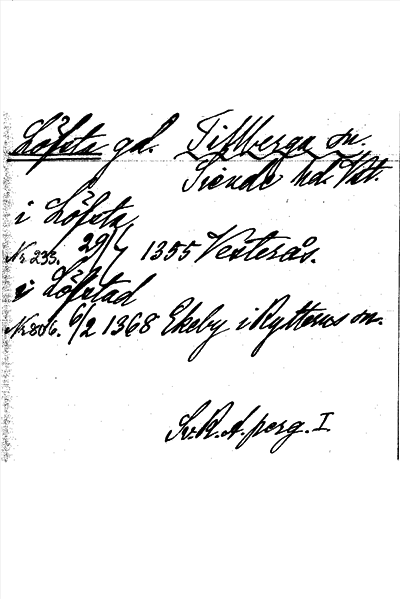 Löfsta gd. Tillberga sn.
Siende hd. Vstm.
i Löfsta
Nr 233. 29/7 1355 Vesterås.
i Löfstad
Nr 806. 6/2 1368 Ekeby i Rytterns sn.
Sv. R. A. perg. I